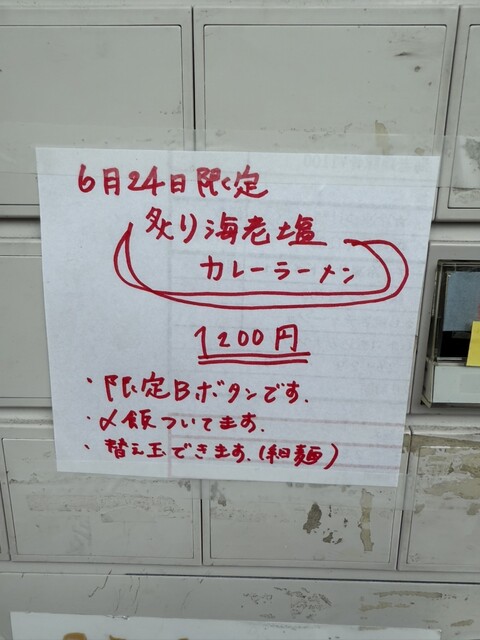 6月24日限定
炙り海老塩
カレーラーメン
1200円
・限定Bボタンです.
・〆飯ついてます.
・替え玉できます.(細麺)